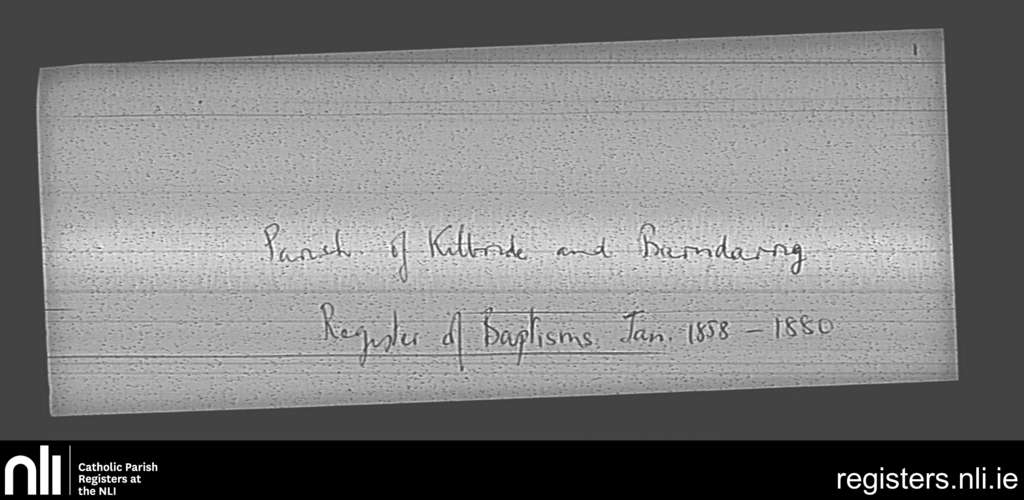 1
Parish of Kilbride and Barndarrig
Register of Baptisms. Jan. 1858 – 1880
nli
Catholic Parish
Registers at
the NLI
registers.nli.ie